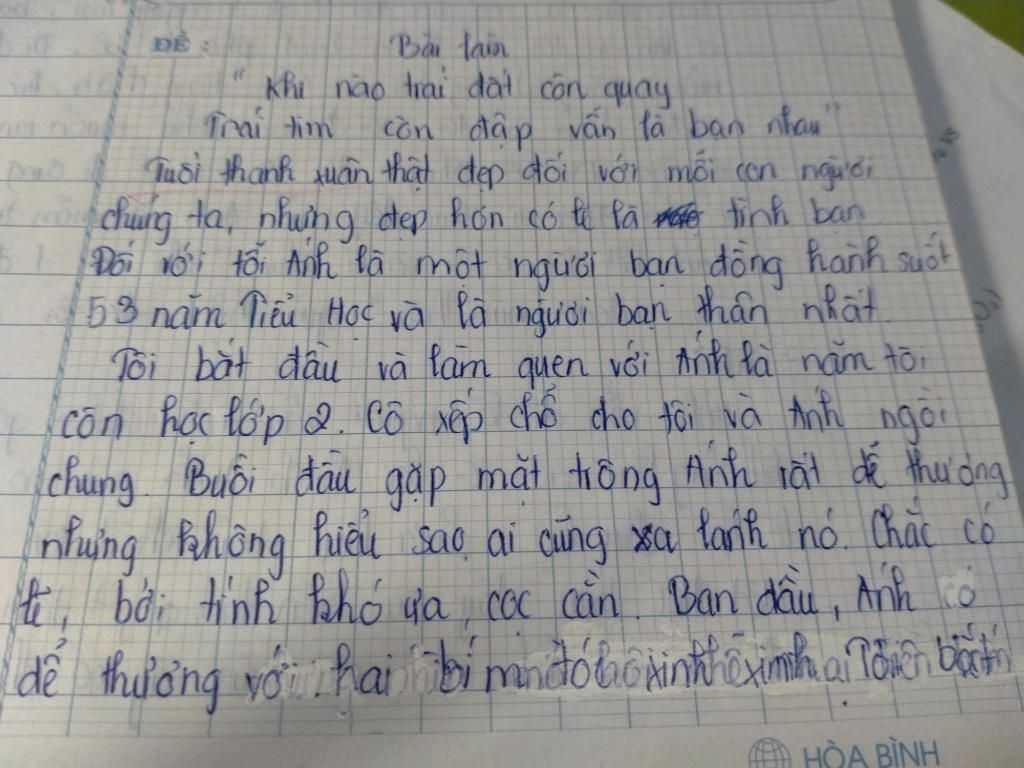 ĐỀ : Bài làm
"Khi nào trái đất còn quay
Trái tim còn đập vẫn là bạn nhau"
Tuổi thanh xuân thật đẹp đối với mỗi con người
chúng ta, nhưng đẹp hơn có lẽ là tình bạn
Đối với tôi Ánh là một người bạn đồng hành suốt
53 năm Tiểu Học và là người bạn thân nhất.
Tôi bắt đầu và làm quen với Ánh là năm tôi
còn học lớp 2. Cô xếp chỗ cho tôi và Ánh ngồi
chung. Buổi đầu gặp mặt trông Ánh rất dễ thương
nhưng không hiểu sao ai cũng xa lánh nó. Chắc có
lẽ, bởi tính khó ưa, cọc cằn. Ban đầu, Ánh có
dễ thương với hai bí
HÒA BÌNH